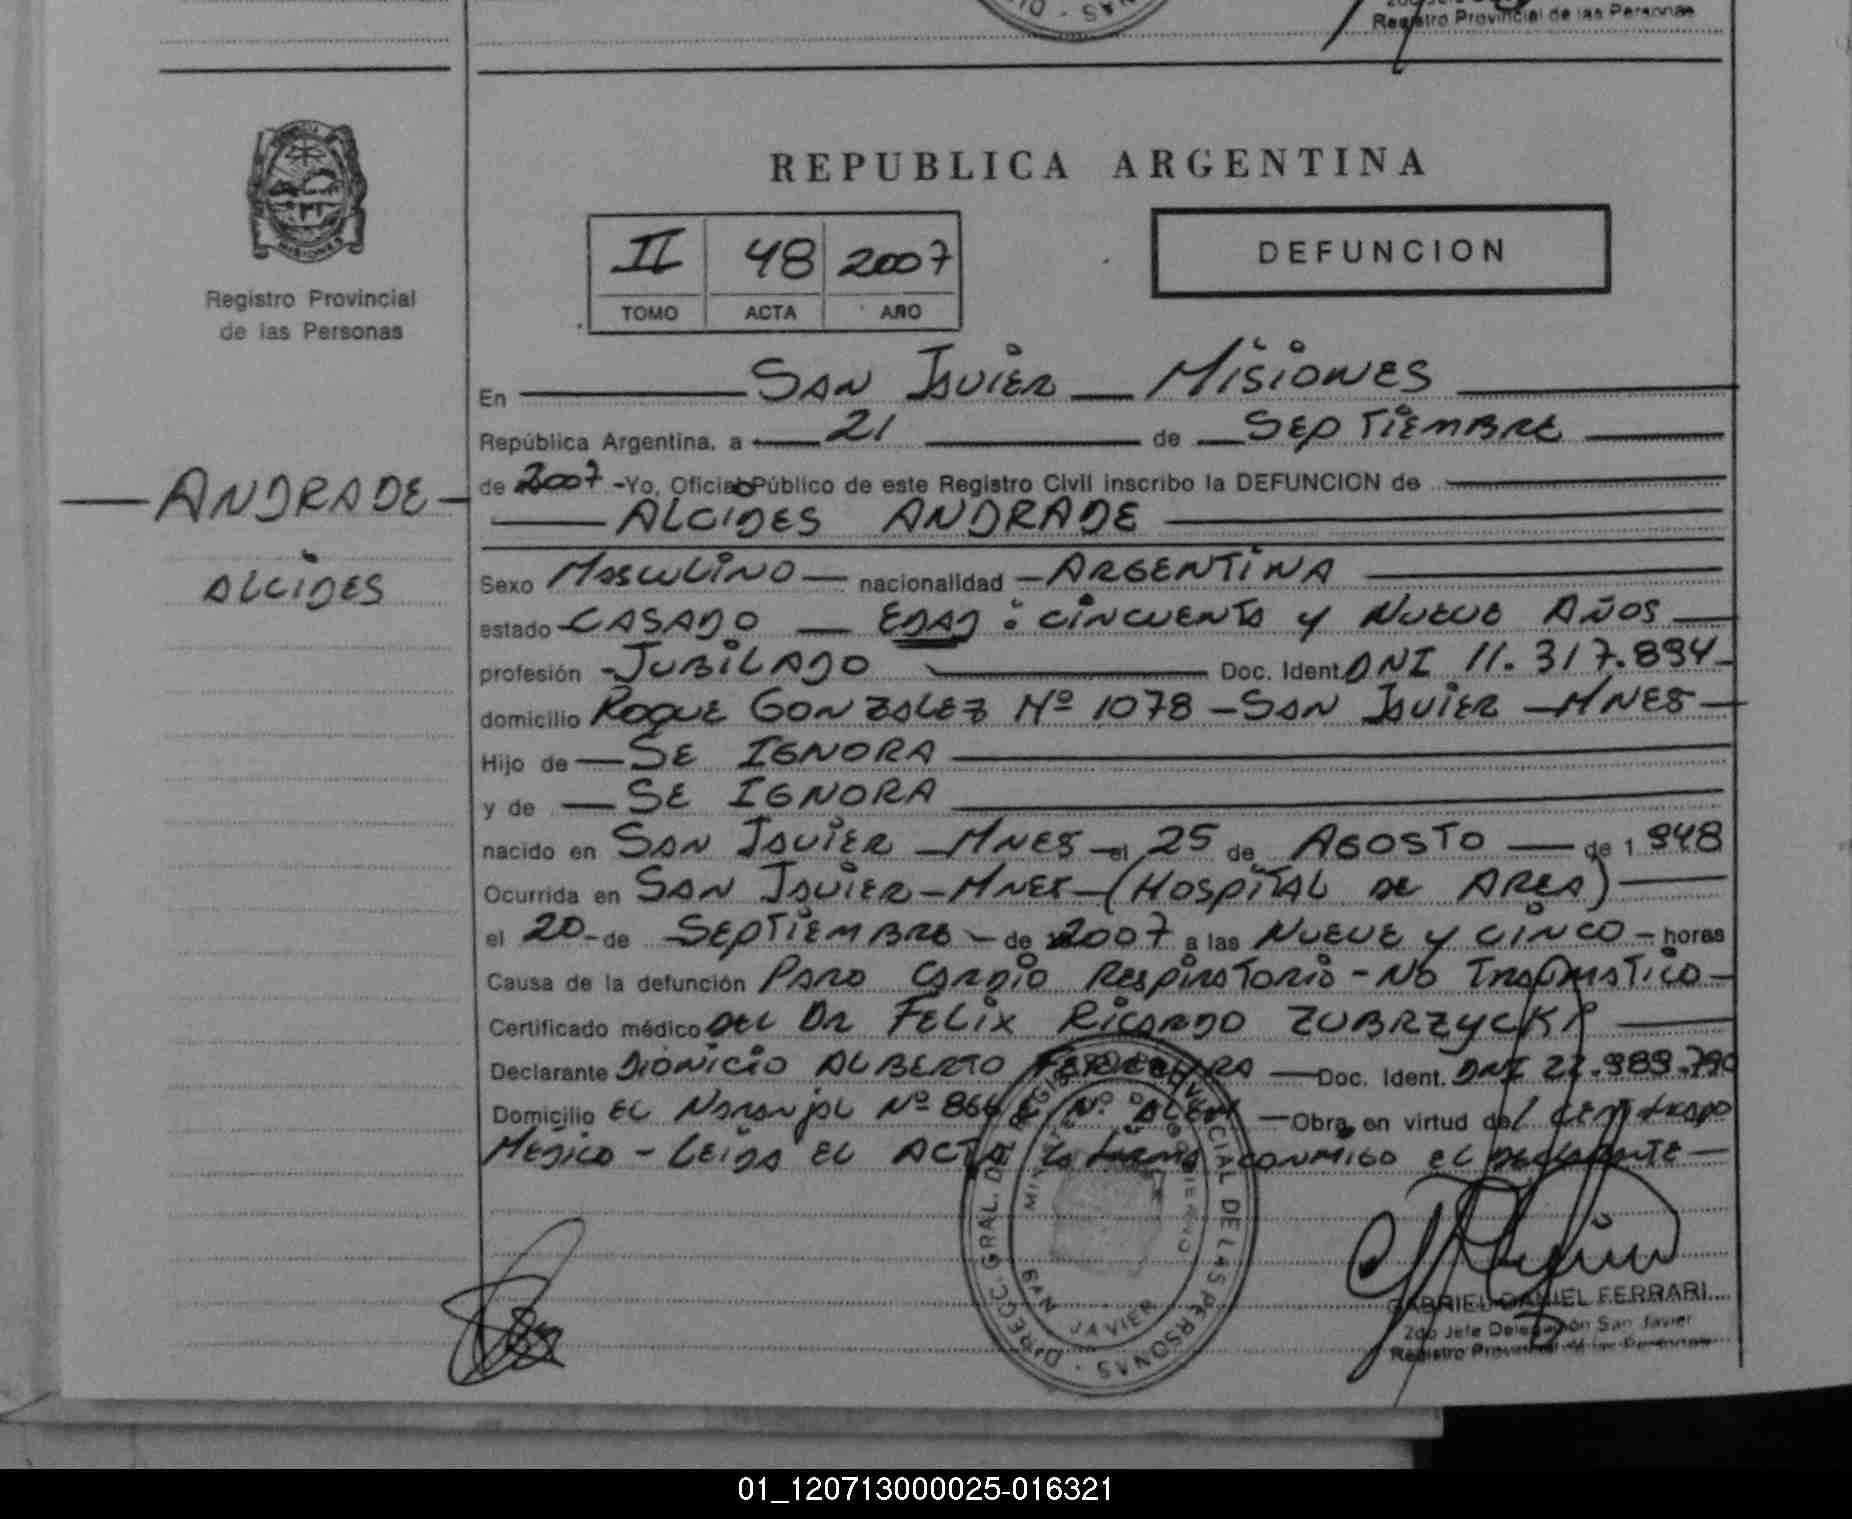 Registro Provincial de las Personas
REPUBLICA ARGENTINA
DEFUNCION
II 48 2007
TOMO ACTA AÑO
MISIONES
Registro Provincial
de las Personas
ANDRADE
ALCIDES
En SAN JAVIER MISIONES
República Argentina, a 21 de SEPTIEMBRE
de 2007 - Yo, Oficial Público de este Registro Civil inscribo la DEFUNCION de
ALCIDES ANDRADE
Sexo MASCULINO nacionalidad ARGENTINA
estado CASADO EDAD: CINCUENTA y NUEVE AÑOS
profesión JUBILADO Doc. Ident. DNI 11.317.894
domicilio ROQUE GONZALEZ Nº 1078 - SAN JAVIER - MNES
Hijo de SE IGNORA
y de SE IGNORA
nacido en SAN JAVIER - MNES el 25 de AGOSTO de 1948
Ocurrida en SAN JAVIER - MNES - (HOSPITAL DE AREA)
el 20 de SEPTIEMBRE de 2007 a las NUEVE y CINCO horas
Causa de la defunción PARO CARDIO RESPIRATORIO - NO TRAUMATICO
Certificado médico DEL DR FELIX RICARDO ZUBRZYCKI
Declarante DIONICIO ALBERTO Doc. Ident. DNI 22.989.790
Domicilio EL NARANJAL Nº ALEM Obra en virtud del CERTIFICADO
MEDICO - LEIDA EL ACTA LA FIRMA CONMIGO EL DECLARANTE
DIRECC. GRAL. DEL REGISTRO PROVINCIAL DE LAS PERSONAS
MINISTERIO DE GOBIERNO
SAN JAVIER
GABRIEL DANIEL FERRARI
2do Jefe Delegación San Javier
Registro Provincial de las Personas
01_120713000025-016321